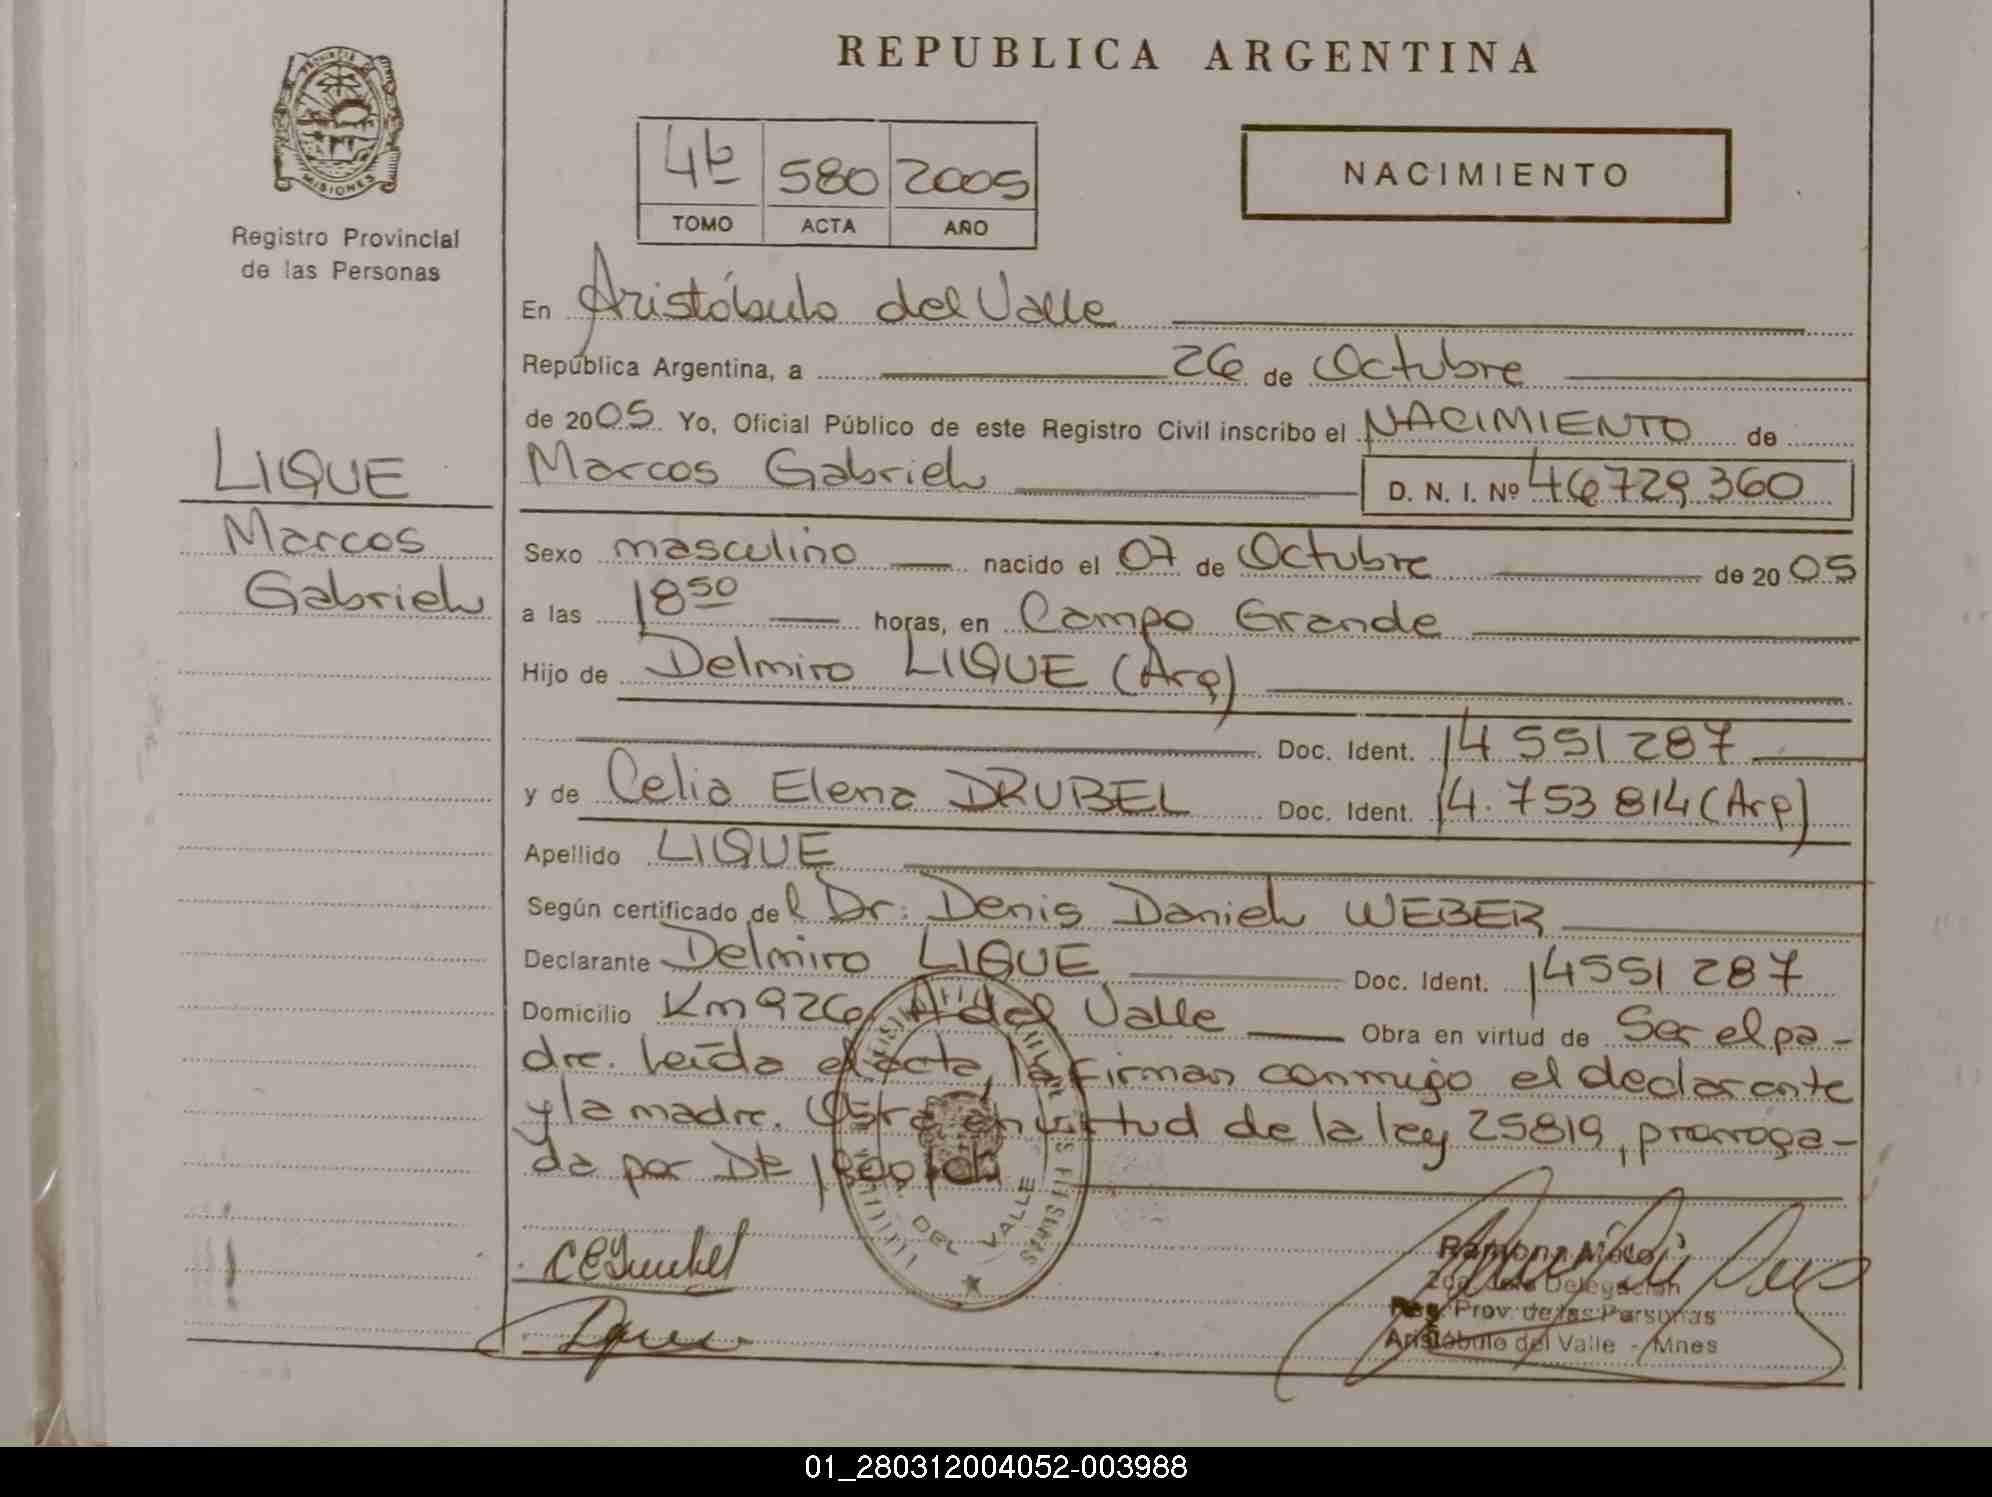 REPUBLICA ARGENTINA
PROVINCIA DE
MISIONES
Registro Provincial
de las Personas
4t 580 2005
TOMO ACTA AÑO
NACIMIENTO
LIQUE
Marcos
Gabriel
En Aristóbulo del Valle
República Argentina, a 26 de Octubre
de 2005 Yo, Oficial Público de este Registro Civil inscribo el NACIMIENTO de
Marcos Gabriel D. N. I. Nº 46729360
Sexo masculino nacido el 07 de Octubre de 20 05
a las 18 50 horas, en Campo Grande
Hijo de Delmiro LIQUE (Arg)
Doc. Ident. 14 551 287
y de Celia Elena DRUBEL Doc. Ident. 14.753 814 (Arg)
Apellido LIQUE
Según certificado del Dr. Denis Daniel WEBER
Declarante Delmiro LIQUE Doc. Ident. 14551 287
Domicilio Km 926 A del Valle Obra en virtud de Ser el pa-
dre. Leída el acta, la firman conmigo el declarante
y la madre. Obra en virtud de la ley 25819, prorroga-
da por
DEL VALLE
Ramona
2da. Jefe Delegación
Reg. Prov. de las Personas
Aristóbulo del Valle - Mnes
01_280312004052-003988